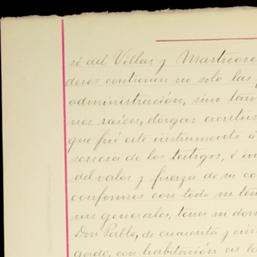 si del Villar y Marticore
deres contienen no solo las
administración, sino tam
nes raíces, otorgar escritu
que fué este instrumento á
sencia de los testigos, é in
del valor y fuerza de su co
conformes con todo su ten
sus generales, tener su dom
Don Pablo, de cuarenta y cin
gado, con habitación en la